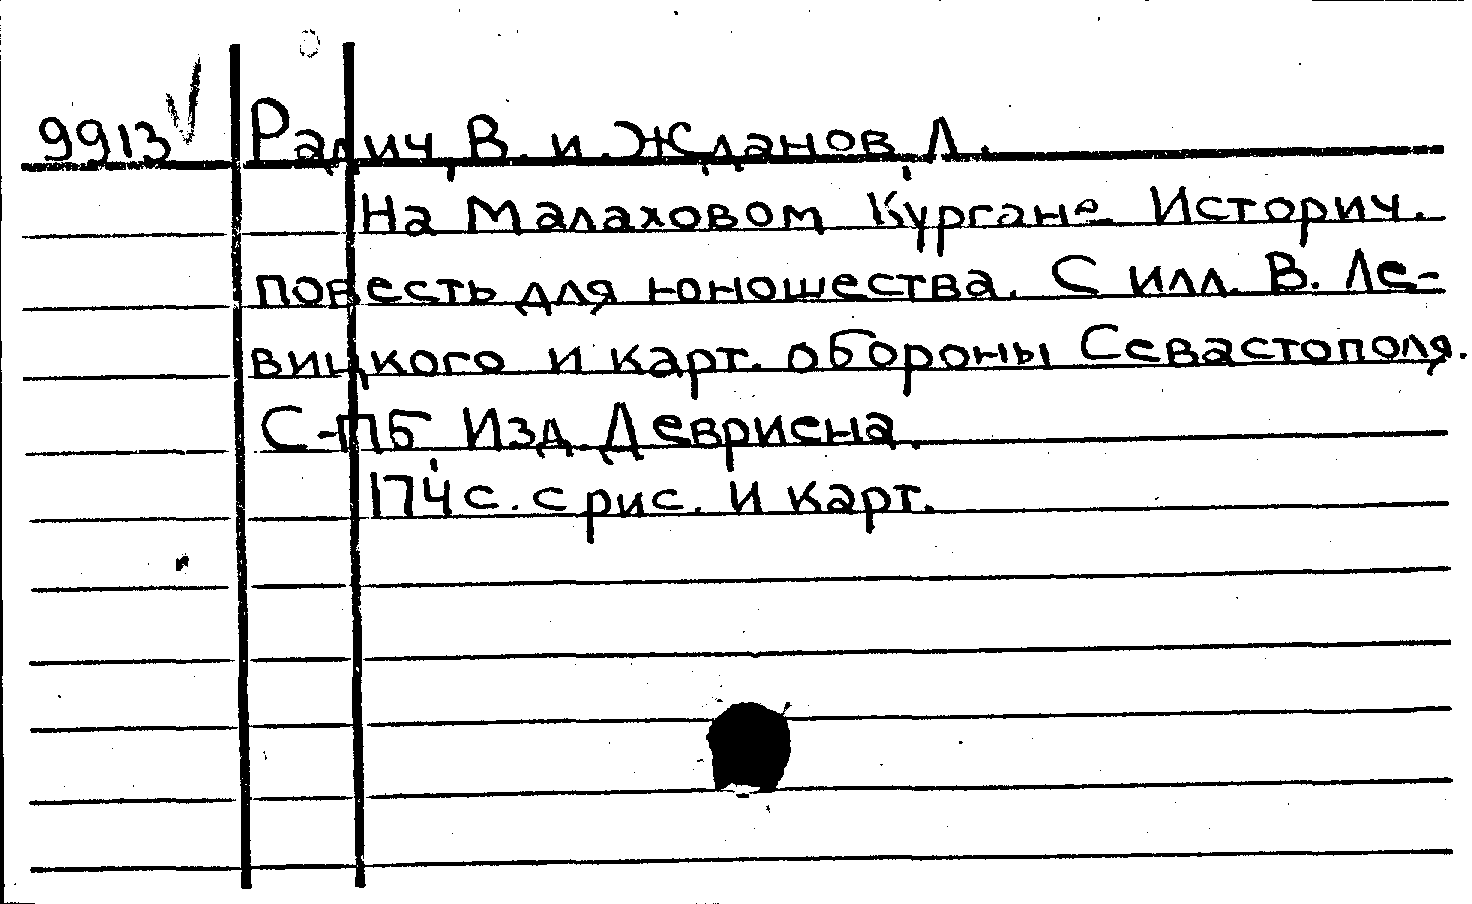 9913 Радич, В. и Жданов, Л.
На Малаховом Кургане. Историч.
повесть для юношества. С илл. В. Ле-
вицкого и карт. обороны Севастополя.
С-ПБ Изд. Девриена.
174 с. с рис. и карт.